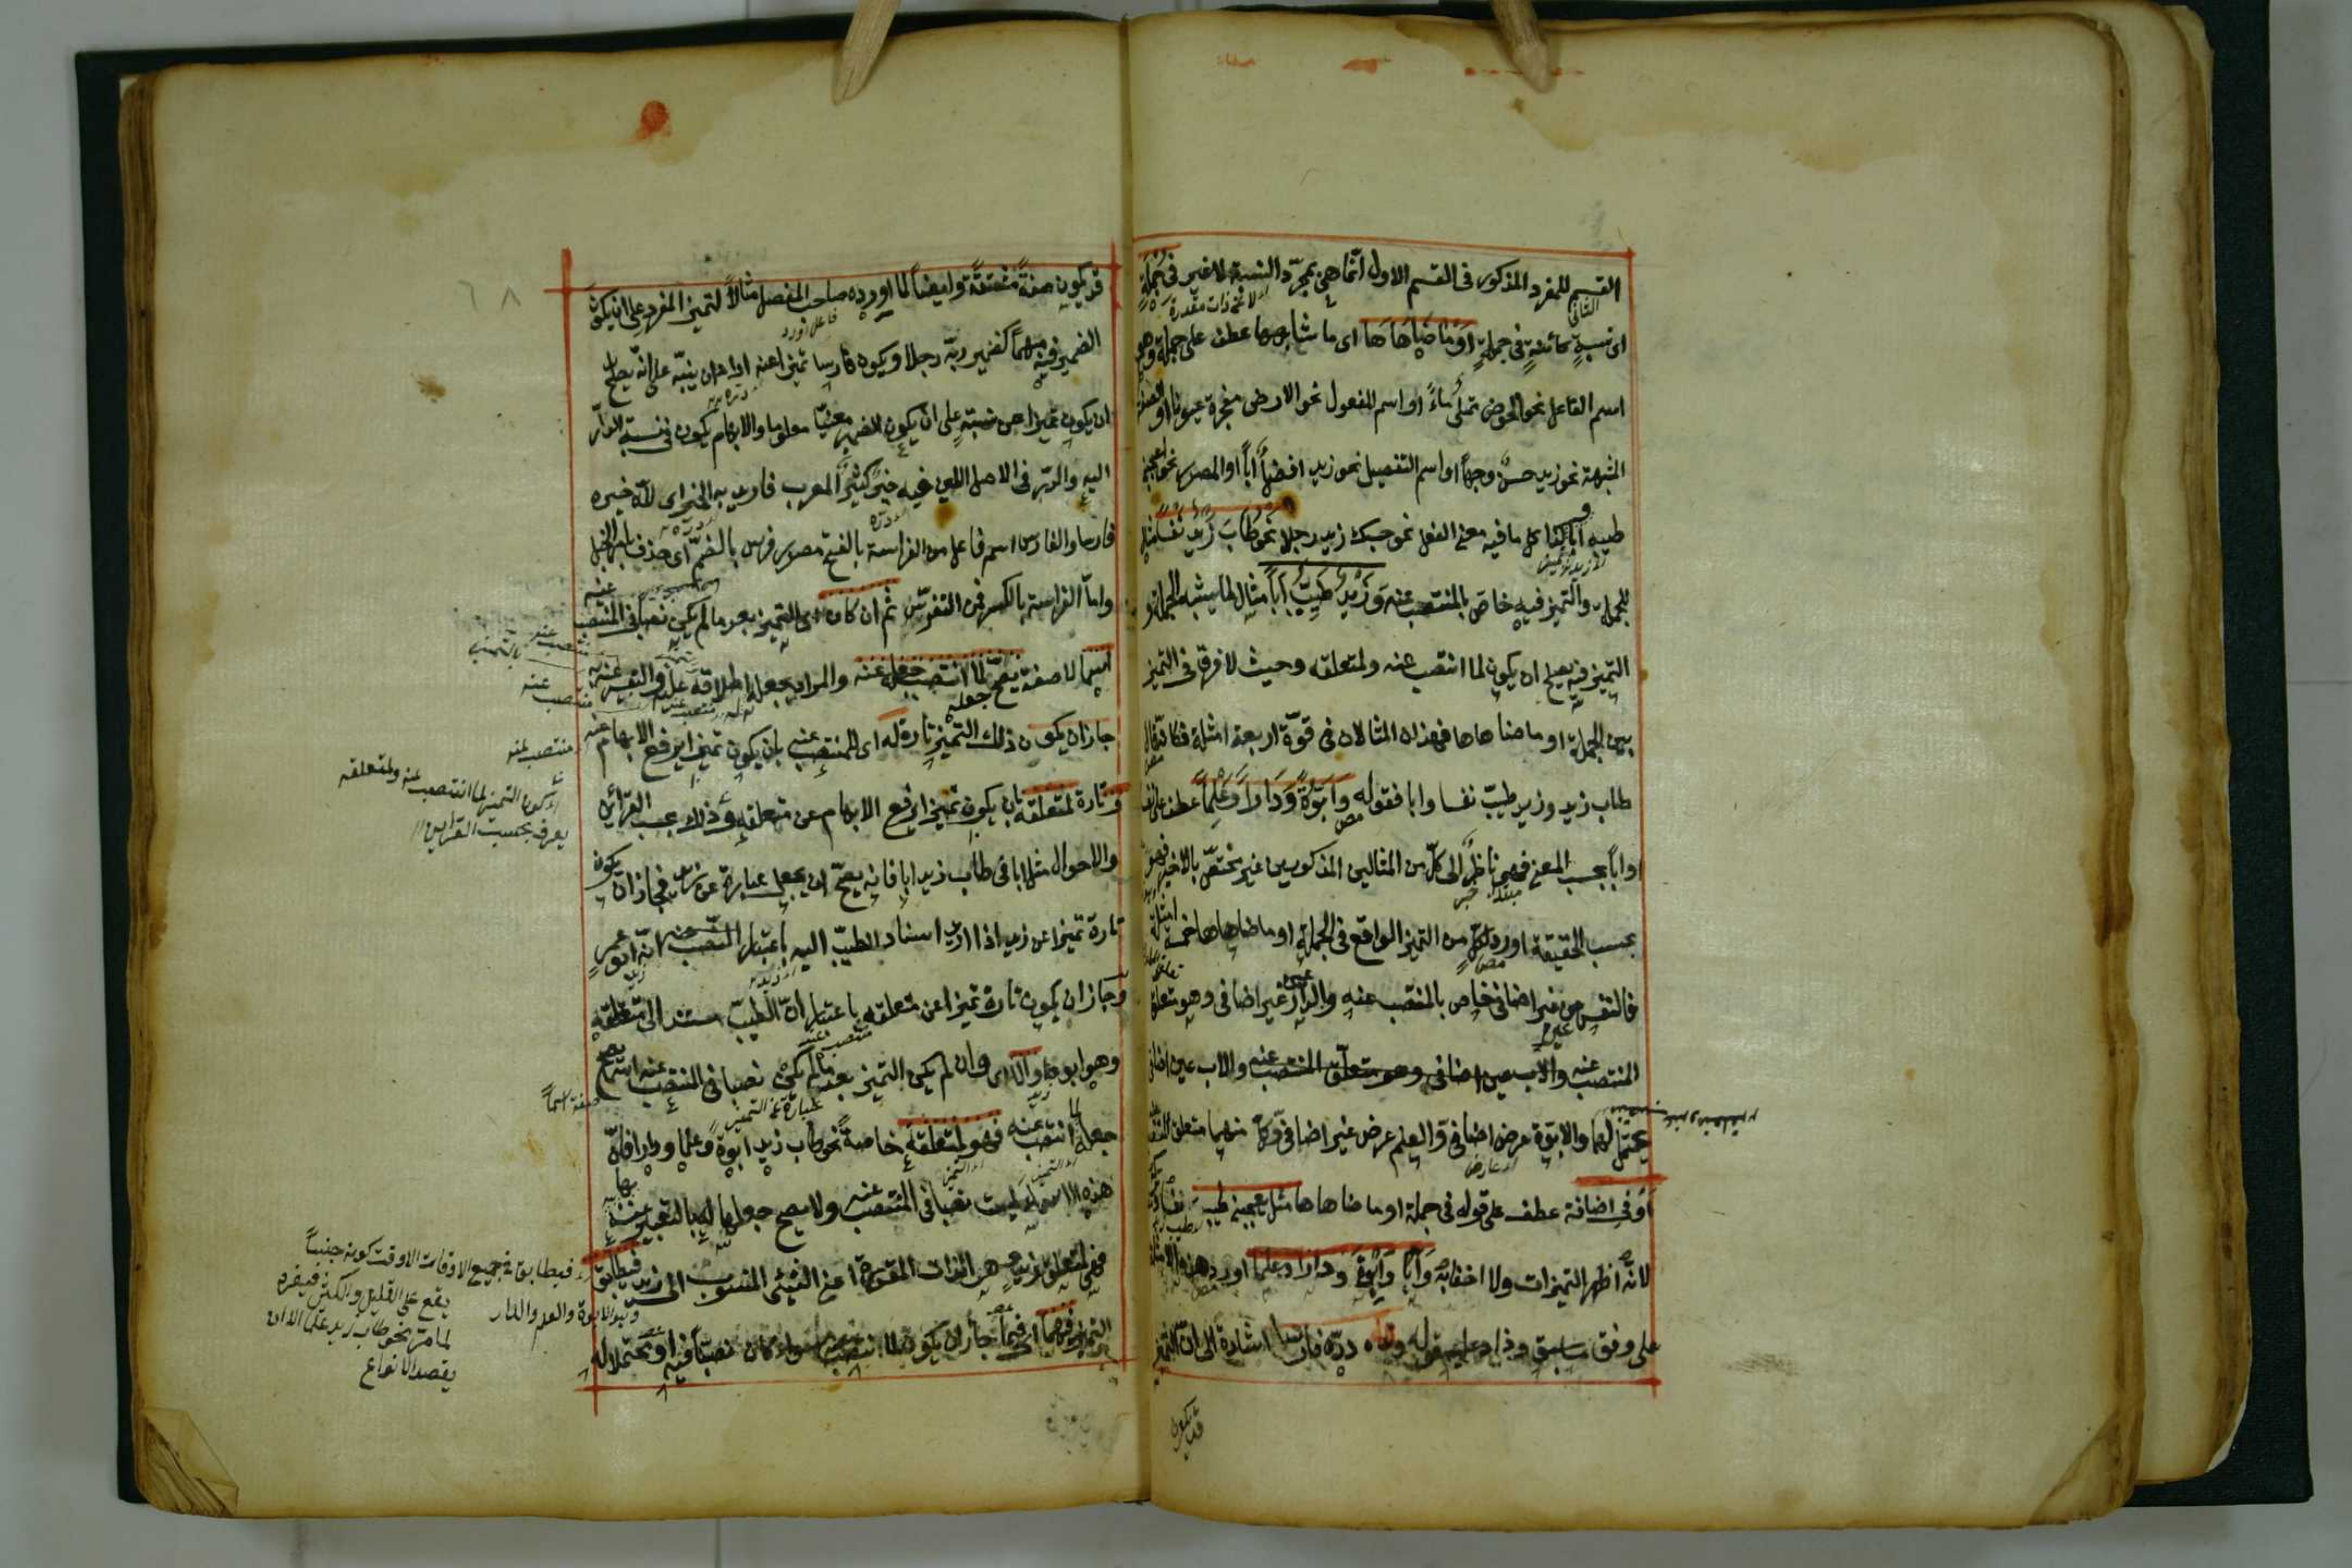 القسيم للمفرد المذكور فى القسم الاول انما هى بمجرد النسبة لا غير فى جملة
اى نسبة كائنة فى جملة او ما ضاهاها اى ما شابهها عطف على جملة وهو
اسم الفاعل نحو الحوض ممتلئ ماءً او اسم المفعول نحو الارض مفجرة عيونا او الصفة
المشبهة نحو زيد حسن وجهاً او اسم التفضيل نحو زيد افضل اباً او المصدر نحو اعجبنى
طيبه اباً وكذا كل ما فيه معنى الفعل نحو حسبك زيد رجلا نحو طاب زيد نفسا مثال
للجملة والتميز فيه خاص بالمنتصب عنه وزيد طيب اباً مثال لما يشبه الجملة و
التميز فيه يصلح ان يكون لما انتصب عنه ولمتعلقه وحيث لا فرق فى التميز
بين الجملة او ما ضاهاها فهذان المثالان فى قوة اربعة امثلة فكانه قال
طاب زيد وزيد طيب نفسا وابا فقوله وابوة ودارا وعلما عطف على نفسا
او اباً بحسب المعنى فهى ناظر الى كل من المثالين المذكورين غير مختص بالاخير فهو
بحسب الحقيقة اورد لكل من التميز الواقع فى الجملة او ما ضاهاها خمسة امثلة
فالنفس عين غير اضافى خاص بالمنتصب عنه والدار عين غير اضافى وهو متعلق
المنتصب عنه والاب عين اضافى وهو متعلق المنتصب عنه والاب عين اضافى
يحتمل لهما والابوة عرض اضافى والعلم عرض غير اضافى وكل منهما متعلق المنتصب
او فى اضافة عطف على قوله فى جملة او ما ضاهاها مثل يعجبنى طيبه نفسا
لانه اظهر التميزات ولا اخفا به وابا وابوة ودارا وعلما اورد هذه الامثلة
على وفق ما سبق وزاد عليه قوله ولله دره فارسا اشارة الى ان التميز
قد يكون
٦٨
قد يكون صفة مشتقة وايضا لما اورده صاحب المفصل مثالا لتميز المفرد على ان يكون
الضمير فيه مبهما كضمير ربه رجلا ويكون فارسا تميزا عنه اراد ان ينبه على انه يصلح
ان يكون تميزا عن نسبة على ان يكون الضمير معينا معلوما والابهام يكون فى نسبة الدر
اليه والدر فى الاصل اللبن فيه خير كثير للعرب فاريد به الخير اى لله خيره
فارسا والفارس اسم فاعل من الفراسة بالفتح مصدر فرس بالضم اى حذق بامر الخيل
واما الفراسة بالكسر فمن التفرس ثم ان كان اى التميز بعد ما لم يكن نصا فى المنتصب عنه
اسما لا صفة يصح جعله لما انتصب عنه والمراد بجعله له اطلاقه عليه والتعبير عنه به
جاز ان يكون ذلك التميز تارة له اى للمنتصب عنه بان يكون تميزا يرفع الابهام عنه
وتارة لمتعلقه بان يكون تميزا يرفع الابهام عن متعلقه وذلك بحسب القرائن
والاحوال مثل ابا فى طاب زيد ابا فانه يصح ان يجعل عبارة عن زيد فجاز ان يكون
تارة تميزا عن زيد اذا اريد اسناد الطيب اليه باعتبار انه ابو عمرو
وجاز ان يكون تارة تميزا عن متعلقه باعتبار ان الطيب مسند الى متعلقه
وهو ابوه والا اى وان لم يكن التميز بعد ما لم يكن نصا فى المنتصب عنه اسما يصح
جعله لما انتصب عنه فهو لمتعلقه خاصة نحو طاب زيد ابوة وعلما ودارا فان
هذه الاسماء ليست نصا فى المنتصب عنه ولا يصح جعلها له بالتعبير عنه بها
فهى لمتعلق زيد هى الذات المقدرة اعنى الشئ المنسوب الى زيد فيطابق
التميز فيهما اى فيما جاز ان يكون لما انتصب عنه سواء كان نصا فيه او محتملا له
اى كون التميز لما انتصب عنه ولمتعلقه
يعرف بحسب القرائن
فيطابق فى جميع الاوقات الا وقت كونه جنساً
يقع على القليل والكثير فيفرد
لما مر نحو طاب زيد علما الا ان
يقصد الانواع
وهو الابوة والعلم والدار